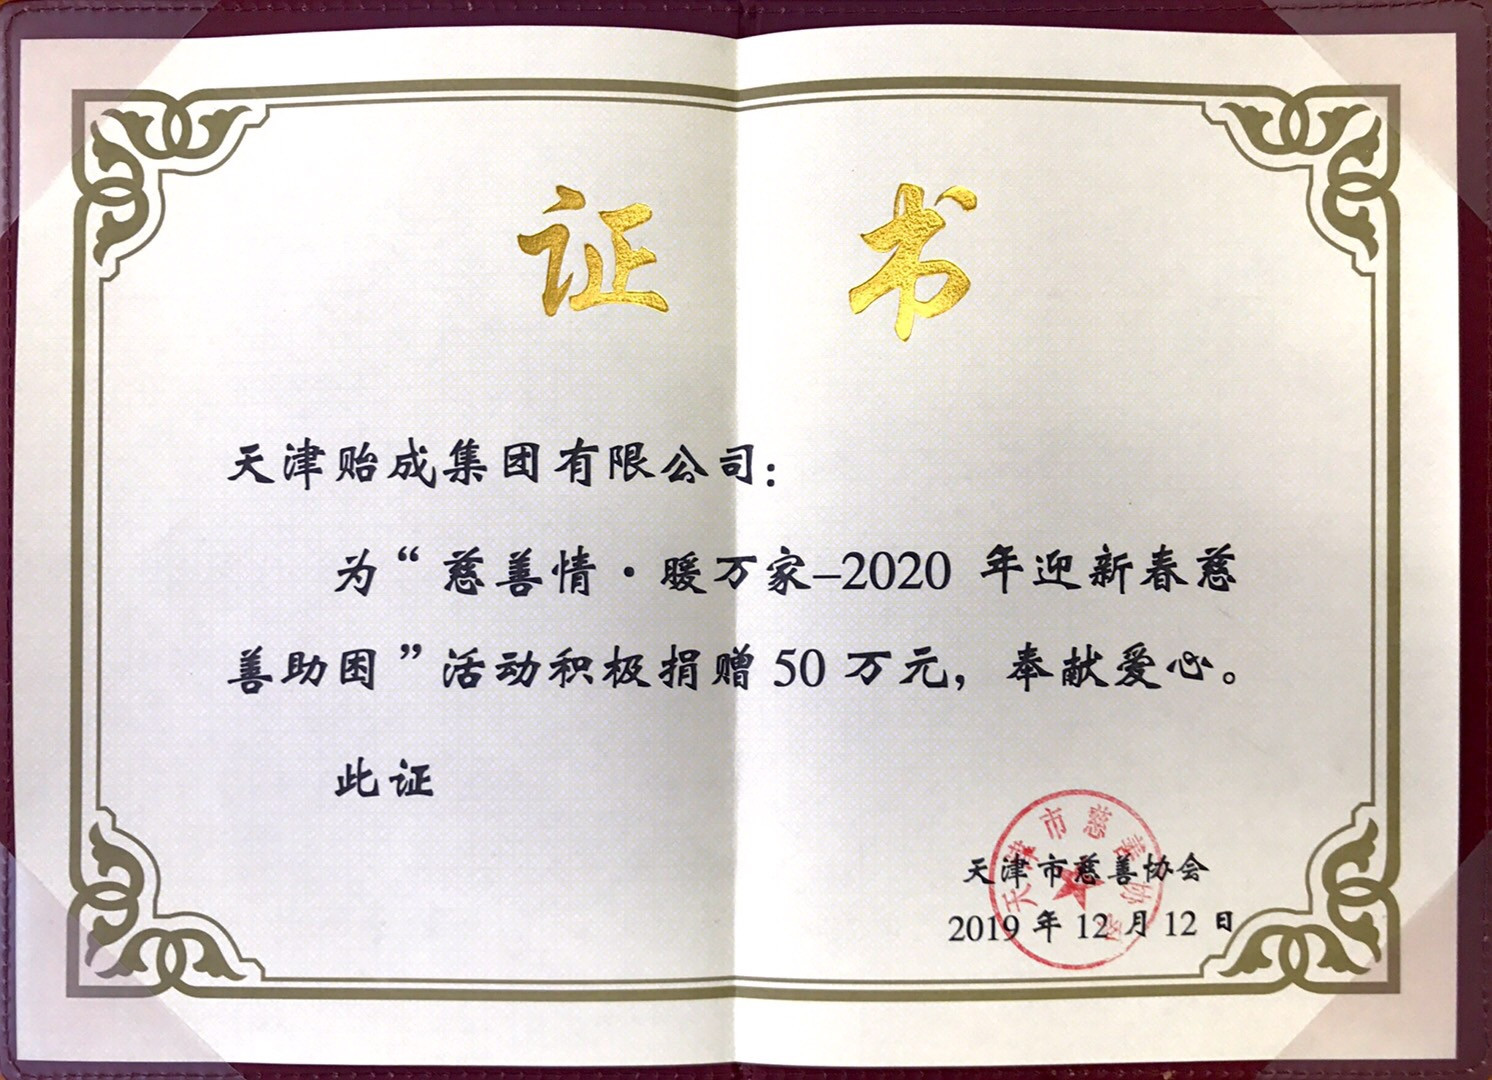 证书
天津贻成集团有限公司：
为“慈善情·暖万家–2020 年迎新春慈
善助困”活动积极捐赠 50 万元，奉献爱心。
此证
天津市慈善协会
天津市慈善协会
2019 年 12 月 12 日